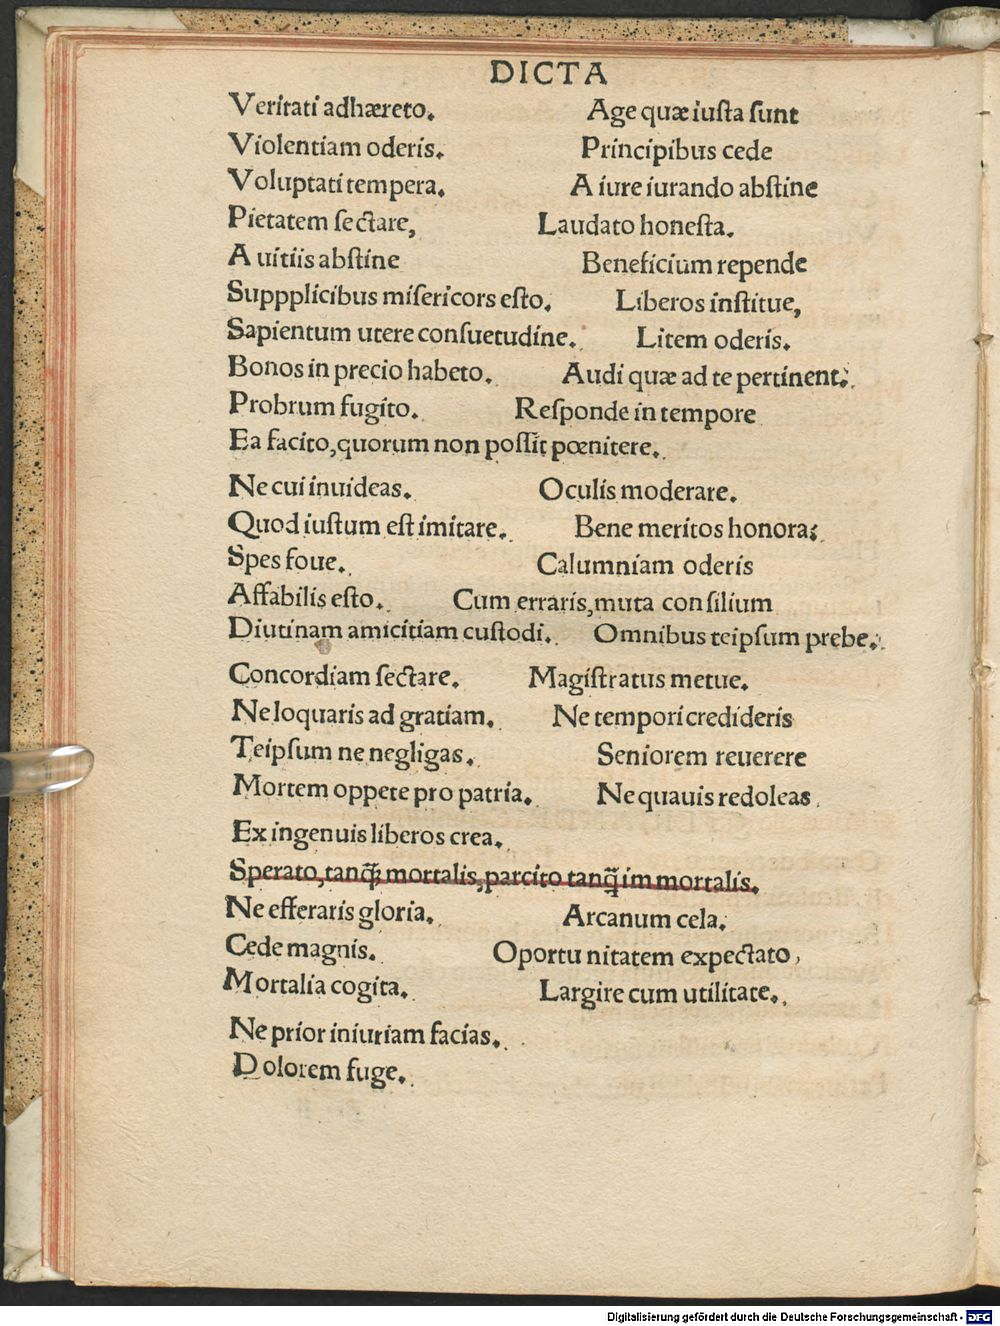 DICTA
Veritati adhæreto. Age quæ iusta sunt
Violentiam oderis. Principibus cede
Voluptati tempera. A iure iurando abstine
Pietatem sectare, Laudato honesta.
A uitiis abstine Beneficium repende
Suppplicibus misericors esto. Liberos institue,
Sapientum utere consuetudine. Litem oderis.
Bonos in precio habeto. Audi quæ ad te pertinent.
Probrum fugito. Responde in tempore
Ea facito, quorum non possit pœnitere.
Ne cui inuideas. Oculis moderare.
Quod iustum est imitare. Bene meritos honora:
Spes foue. Calumniam oderis
Affabilis esto. Cum erraris, muta consilium
Diutinam amicitiam custodi. Omnibus teipsum prebe.
Concordiam sectare. Magistratus metue.
Ne loquaris ad gratiam. Ne tempori credideris
Teipsum ne negligas. Seniorem reuerere
Mortem oppete pro patria. Ne quauis redoleas.
Ex ingenuis liberos crea.
Sperato, tanq̃ mortalis, parcito tanq̃ immortalis.
Ne efferaris gloria. Arcanum cela.
Cede magnis. Oportunitatem expectato,
Mortalia cogita. Largire cum utilitate.
Ne prior iniuriam facias.
Dolorem fuge.
Digitalisierung gefördert durch die Deutsche Forschungsgemeinschaft - DFG